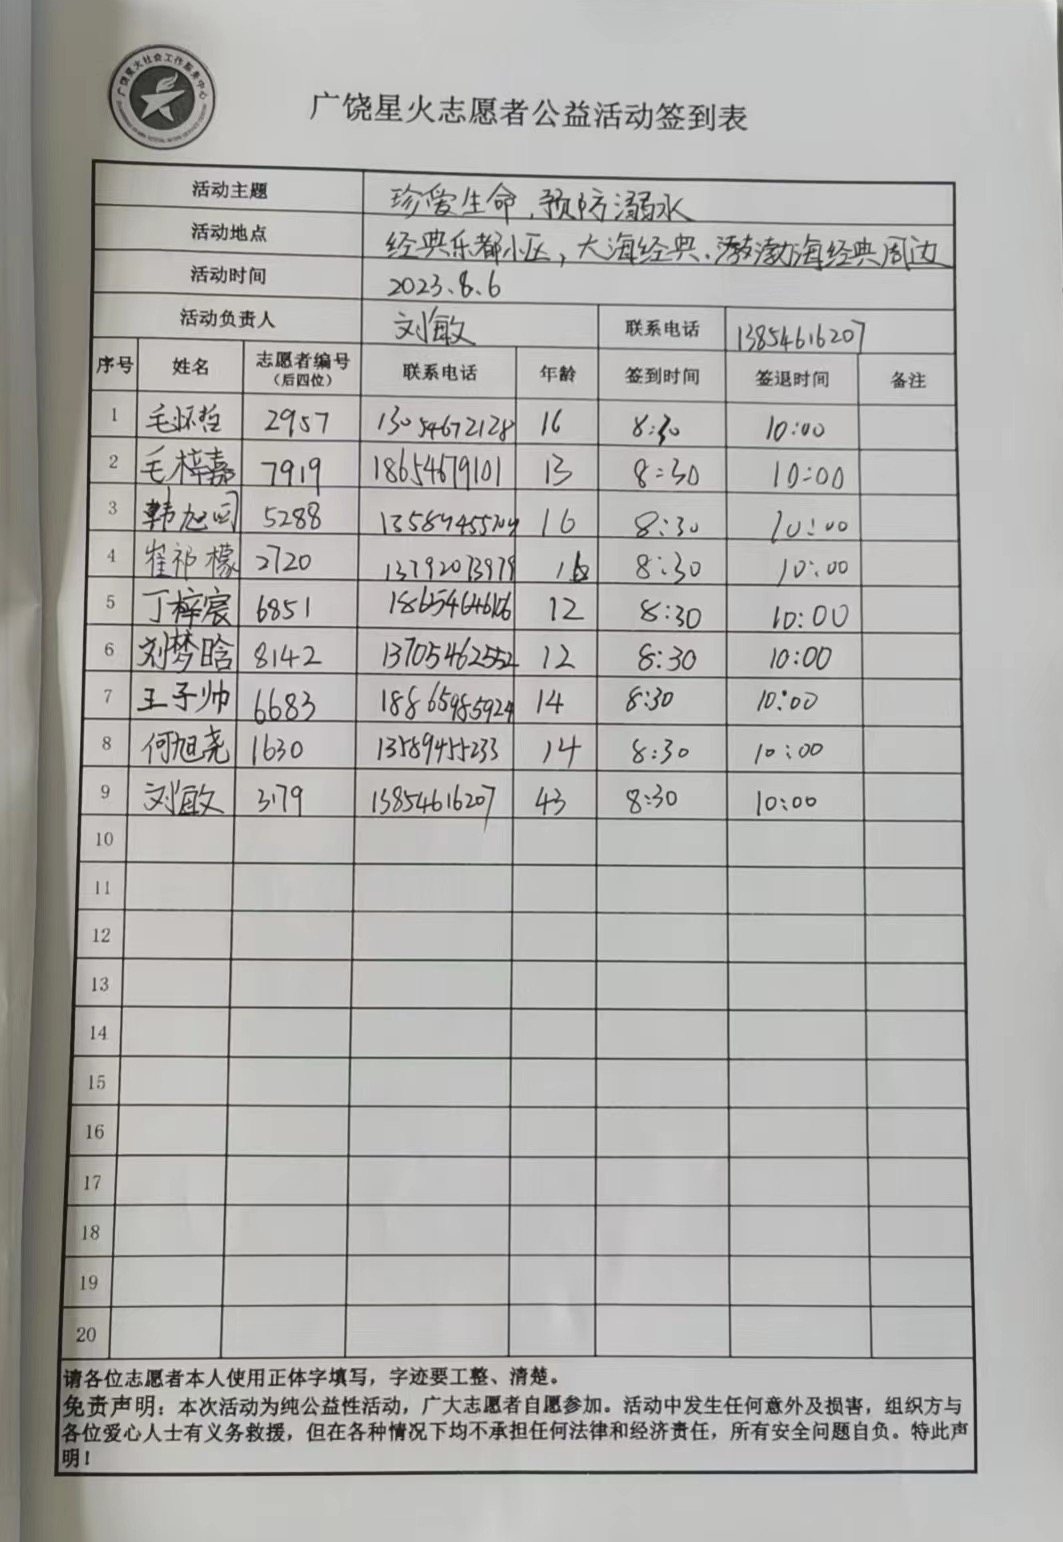 广饶星火社会工作服务中心
广饶星火志愿者公益活动签到表
活动主题 珍爱生命,预防溺水
活动地点 经典乐都小区,大海经典、渤海经典周边
活动时间 2023.8.6
活动负责人 刘敏 联系电话 13854616207
序号 姓名 志愿者编号(后四位) 联系电话 年龄 签到时间 签退时间 备注
1 毛怀哲 2957 13054672128 16 8:30 10:00
2 毛梓嘉 7919 18654679101 13 8:30 10:00
3 韩旭 5288 16 8:30 10:00
4 崔祁檬 2720 13792073979 8:30 10:00
5 丁梓宸 6851 12 8:30 10:00
6 刘梦晗 8142 13705462552 12 8:30 10:00
7 王子帅 6683 18865985924 14 8:30 10:00
8 何旭尧 1630 13589455233 14 8:30 10:00
9 刘敏 3179 13854616207 43 8:30 10:00
10
11
12
13
14
15
16
17
18
19
20
请各位志愿者本人使用正体字填写,字迹要工整、清楚。
免责声明:本次活动为纯公益性活动,广大志愿者自愿参加。活动中发生任何意外及损害,组织方与
各位爱心人士有义务救援,但在各种情况下均不承担任何法律和经济责任,所有安全问题自负。特此声
明!